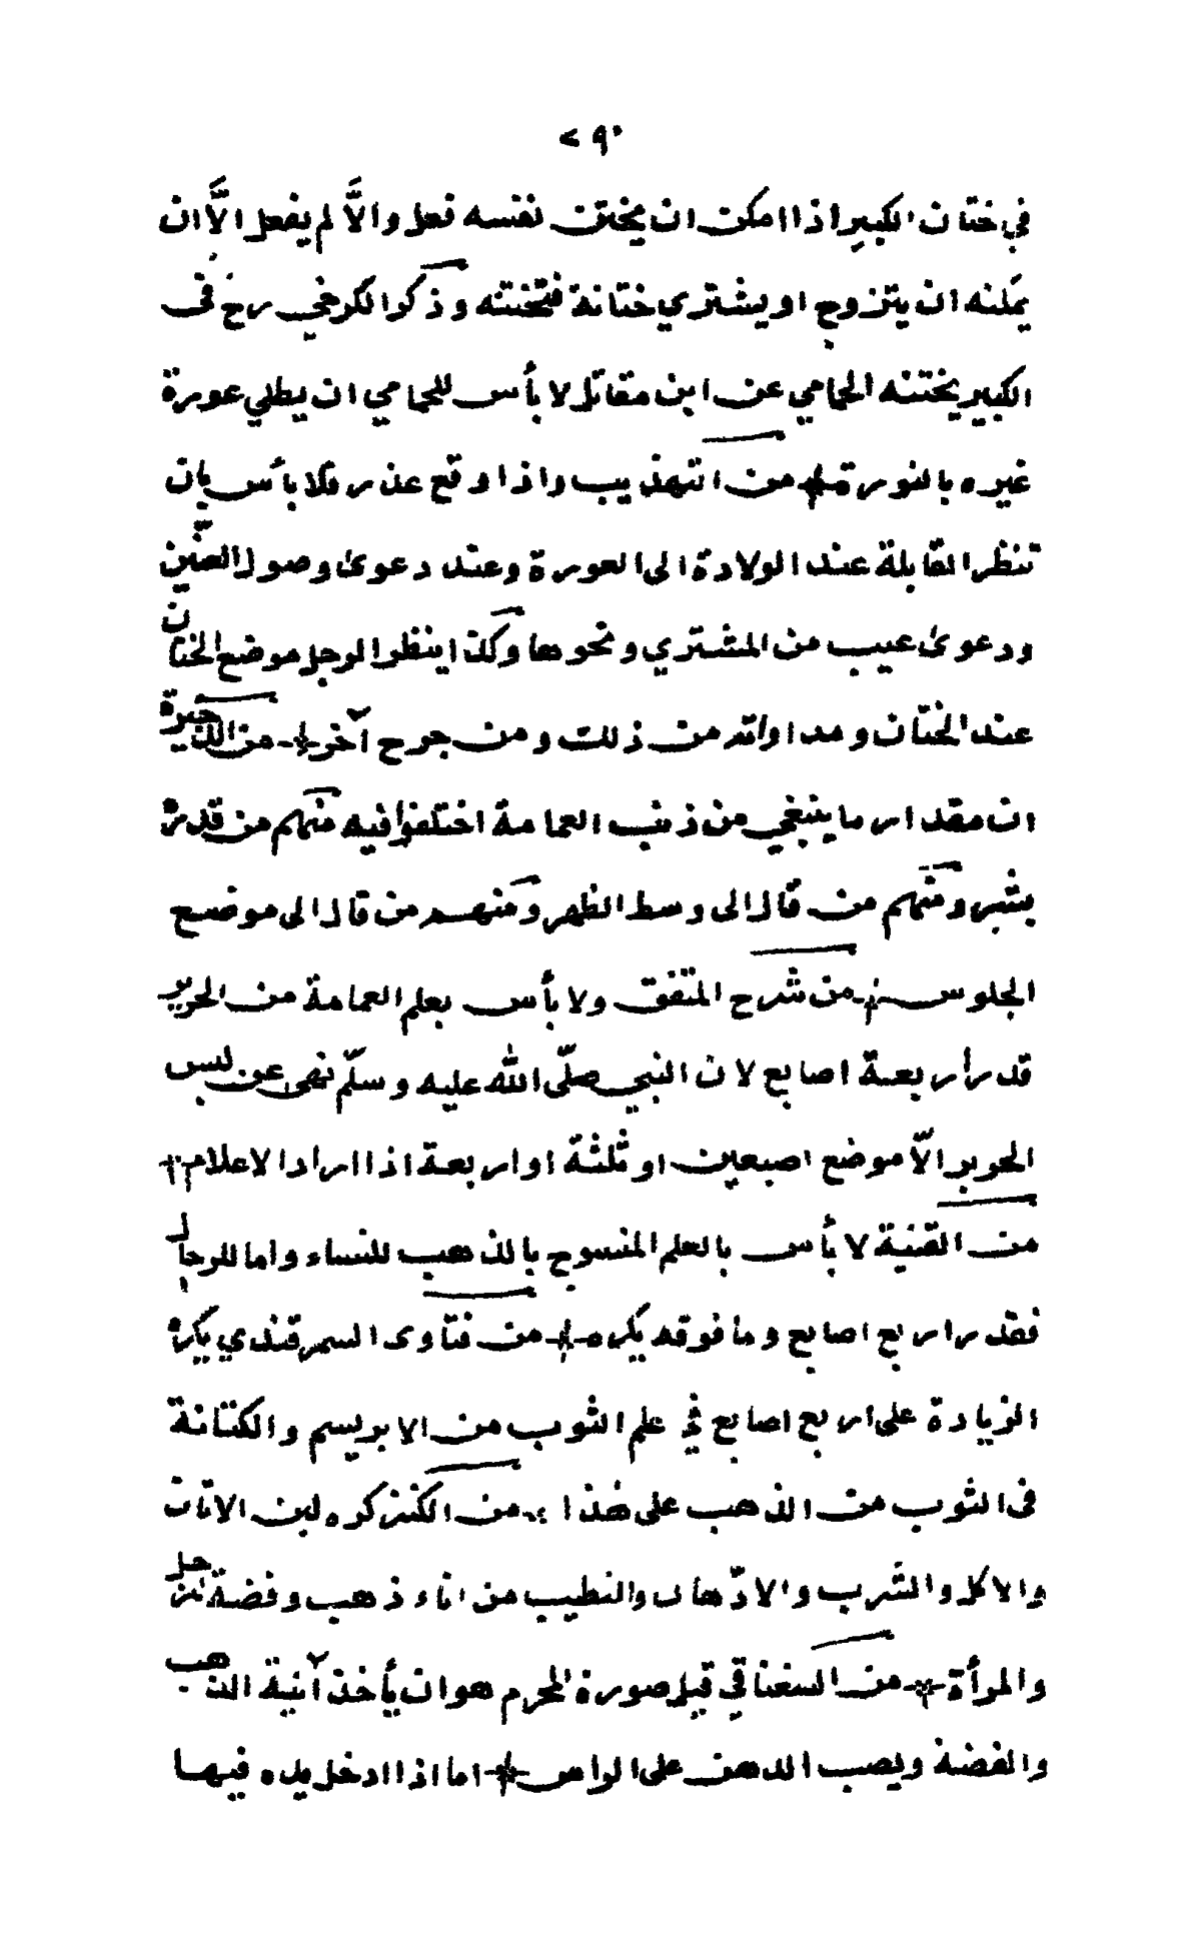 ٢٩٠
في ختان الكبير اذا امكن ان يختن نفسه فعل والَّا لم يفعل الَّا ان
يمكنه ان يتزوج او يشتري ختانة فتختنه وذكر الكرخي رح فى
الكبير يختنه الحمامي عن ابن مقاتل لا بأس للحمامي ان يطلي عورة
غيره بالنورة * من التهذيب واذا وقع عذر فلا بأس بان
تنظر القابلة عند الولادة الى العورة وعند دعوى وصول العنّين
ودعوى عيب من المشتري ونحوها وكذا ينظر الرجل موضع الختان
عند الختان ومداواته من ذلك ومن جرح آخر * من الذخيرة
ان مقدار ما ينبغي من ذنب العمامة اختلفوا فيه منهم من قدره
بشبر ومنهم من قال الى وسط الظهر ومنهم من قال الى موضع
الجلوس * من شرح المتفق ولا بأس بعلم العمامة من الحرير
قدر أربعة اصابع لان النبي صلّى الله عليه وسلّم نهى عن لبس
الحرير الّا موضع اصبعين او ثلثة او اربعة اذا اراد الاعلام *
من القنية لا بأس بالعلم المنسوج بالذهب للنساء واما للرجال
فقدر اربع اصابع وما فوقه يكره * من فتاوى السمرقندي يكره
الزيادة على اربع اصابع في علم الثوب من الابريسم والكتانة
فى الثوب من الذهب على هذا * من الكنز كره لبن الاتان
والاكل والشرب والادّهان والتطيب من اناء ذهب وفضة للرجل
والمرأة * من السغناقي قيل صورة المحرم هو ان يأخذ آنية الذهب
والفضة ويصب الدهن على الراس * اما اذا ادخل يده فيها